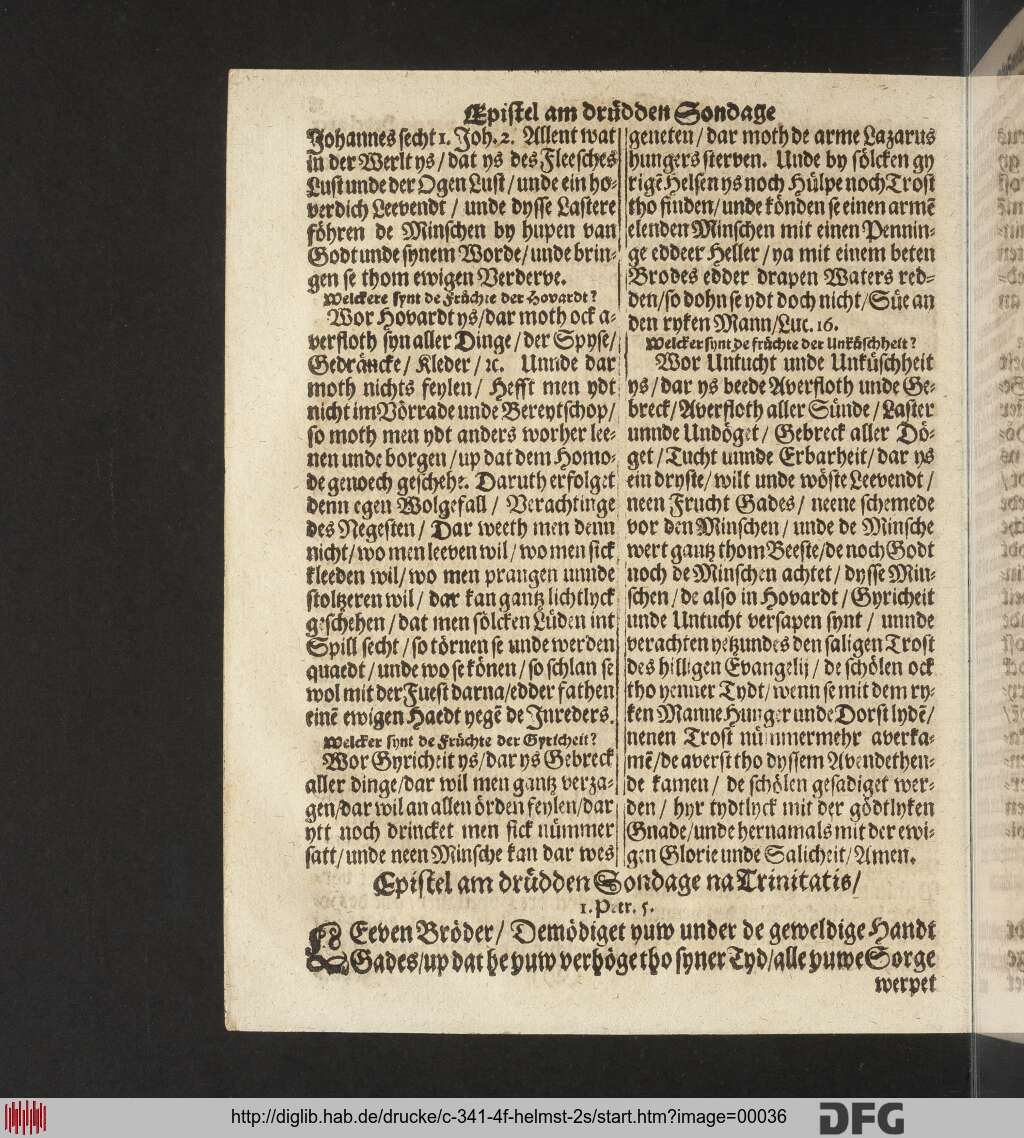 Epistel am drüdden Sondage
Johannes secht 1. Joh. 2. Allent wat
in der Werlt ys / dat ys des Fleesches
Lust unde der Ogen Lust / unde ein ho⸗
verdich Leevendt / unde dysse Lastere
föhren de Minschen by hupen van
Godt unde synem Worde / unde brin⸗
gen se thom ewigen Verderve.
Welckere synt de Früchte der Hovardt?
Wor Hovardt ys / dar moth ock a⸗
verfloth syn aller Dinge / der Spyse /
Gedräncke / Kleder / ꝛc. Unnde dar
moth nichts feylen / Hefft men ydt
nicht im Vörrade unde Bereytschop /
so moth men ydt anders worher lee⸗
nen unde borgen / up dat dem Homo⸗
de genoech geschehe. Daruth erfolget
denn egen Wolgefall / Verachtinge
des Negesten / Dar weeth men denn
nicht / wo men leeven wil / wo men sick
kleeden wil / wo men prangen unnde
stoltzeren wil / dar kan gantz lichtlyck
geschehen / dat men sölcken Lüden int
Spill secht / so törnen se unde werden
quaedt / unde wo se könen / so schlan se
wol mit der Fuest darna / edder fathen
einē ewigen Haedt yegē de Inreders.
Welcker synt de Früchte der Gyricheit?
Wor Gyricheit ys / dar ys Gebreck
aller dinge / dar wil men gantz verza⸗
gen / dar wil an allen örden feylen / dar
ytt noch drincket men sick nümmer
satt / unde neen Minsche kan dar wes
geneten / dar moth de arme Lazarus
hungers sterven. Unde by sölcken gy
rigē Helsen ys noch Hülpe noch Trost
tho finden / unde könden se einen armē
elenden Minschen mit einen Pennin⸗
ge eddeer Heller / ya mit einem beten
Brodes edder drapen Waters red⸗
den / so dohn se ydt doch nicht / Süe an
den ryken Mann / Luc. 16.
Welcker synt de früchte der Unküschheit?
Wor Untucht unde Unküschheit
ys / dar ys beede Averfloth unde Ge⸗
breck / Averfloth aller Sünde / Laster
unnde Undöget / Gebreck aller Dö⸗
get / Tucht unnde Erbarheit / dar ys
ein dryste / wilt unde wöste Leevendt /
neen Frucht Gades / neene schemede
vor den Minschen / unde de Minsche
wert gantz thom Beeste / de noch Godt
noch de Minschen achtet / dysse Min⸗
schen / de also in Hovardt / Gyricheit
unde Untucht versapen synt / unnde
verachten yetzundes den saligen Trost
des hilligen Evangelij / de schölen ock
tho yenner Tydt / wenn se mit dem ry⸗
ken Manne Hunger unde Dorst lydē /
nenen Trost nümmermehr averka⸗
mē / de averst tho dyssem Avendethen⸗
de kamen / de schölen gesadiget wer⸗
den / hyr tydtlyck mit der gödtlyken
Gnade / unde hernamals mit der ewi⸗
gen Glorie unde Salicheit / Amen.
Epistel am drüdden Sondage na Trinitatis /
1. Petr. 5.
LEeven Bröder / Demödiget yuw under de geweldige Handt
Gades / up dat he yuw verhöge tho syner Tyd / alle yuwe Sorge
werpet
http://diglib.hab.de/drucke/c-341-4f-helmst-2s/start.htm?image=00036
DFG